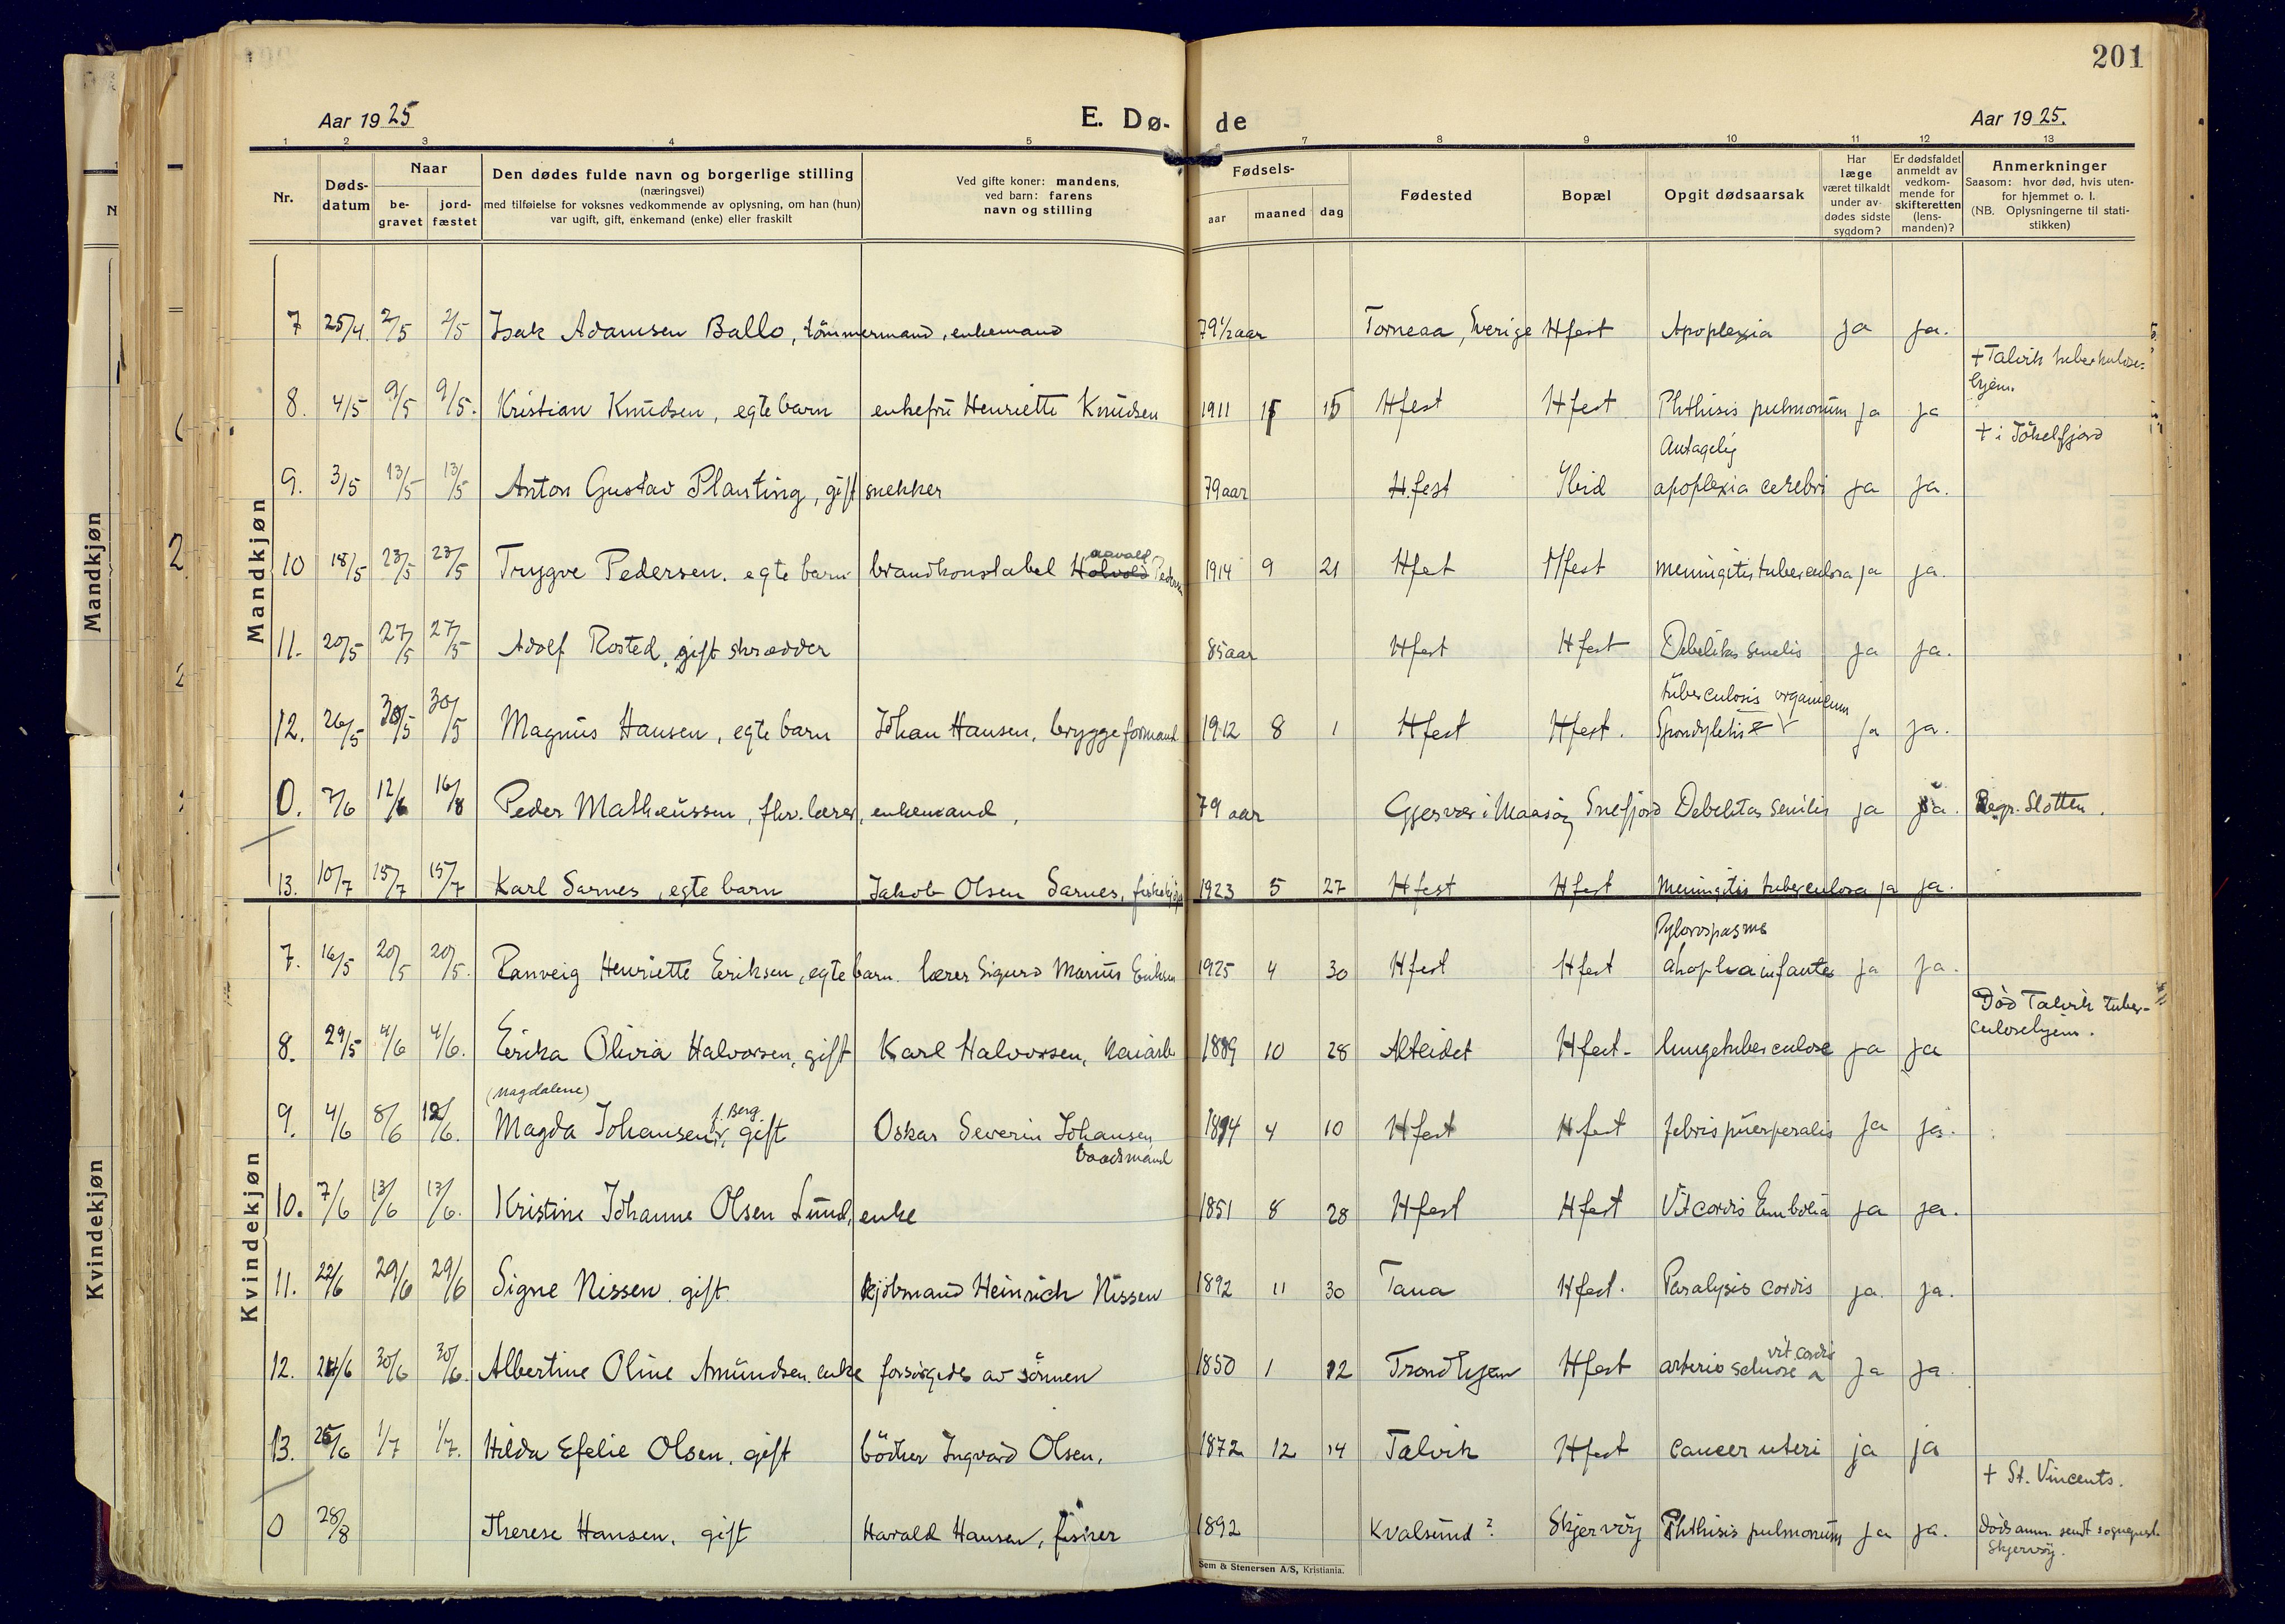 201
Aar 1925
E. Dø- de
Aar 1925.
1 2 3 4 5 6 7 8 9 10 11 12 13
Nr.
Døds-
datum
Naar
be-
gravet
jord-
fæstet
Den dødes fulde navn og borgerlige stilling
(næringsvei)
med tilføielse for voksnes vedkommende av oplysning, om han (hun)
var ugift, gift, enkemand (enke) eller fraskilt
Ved gifte koner: mandens,
ved barn: farens
navn og stilling
Fødsels-
aar maaned dag
Fødested
Bopæl
Opgit dødsaarsak
Har
læge
været tilkaldt
under av-
dødes sidste
sygdom?
Er dødsfaldet
anmeldt av
vedkom-
mende for
skifteretten
(lens-
manden)?
Anmerkninger
Saasom: hvor død, hvis uten-
for hjemmet o. l.
(NB. Oplysningerne til stati-
stikken)
Mandkjøn
7 25/4. 2/5 2/5 Isak Adamsen Ballo, tømmermand, enkemand 79 1/2 aar Torneaa, Sverige Hfest Apoplexia ja ja.
+ Talvik tuberkulose-
hjem.
8. 4/5 9/5 9/5. Kristian Knudsen, egte barn enkefru Henriette Knudsen 1911 15 Hfest Hfest Phthisis pulmonum ja ja
+ i Jökelfjord
Antagelig
9. 3/5 13/5 13/5 Anton Gustav Planting, gift snekker 79 aar H.fest Ibid apoplexia cerebri ja ja.
aavald
10 18/5 23/5 23/5 Trygve Pedersen. egte barn brandkonstabel Holvold Pedersen 1914 9 21 Hfet Hfest meningitis tuberculosa ja ja.
11. 20/5 27/5 27/5 Adolf Rosted, gift skrædder 85 aar Hfest Hfest Debilitas senelis ja ja.
tuberculosis organicum
12. 26/5 30/5 30/5 Magnus Hansen, egte barn Johan Hansen, bryggeformand 1912 8 1 Hfest Hfest. Spondylitis ja ja.
0. 7/6 12/6 16/8 Peder Matheussen, fhv. lærer, enkemand, 79 aar Gjesvær i Maasøy Snefjord Debilitas senilis ja ja. Begr. Slotten.
13. 10/7 15/7 15/7 Karl Sarnes, egte barn Jakob Olsen Sarnes, 1923 5 27 Hfest Hfest meningitis tuberculosa ja ja.
Kvindekjøn
Pylorospasme
7. 16/5 20/5 20/5. Ranveig Henriette Eriksen, egte barn. lærer Sigurd Marius Eriksen 1925 4 30 Hfest Hfest ja ja.
Død Talvik tuber-
culosehjem.
8. 29/5 4/6 4/6. Erika Olivia Halvorsen, gift Karl Halvorsen, kaiarb 1889 10 28 Alteidet Hfest. lungetuberculose ja ja
(Magdalene)
f. Berg
9. 4/6 8/6 12/6. Magda Johansen, gift Oskar Severin Johansen 1894 4 10 Hfest Hfest febris puerperalis ja ja.
baadsmand
10. 7/6 13/6 13/6. Kristine Johanne Olsen Lund, enke 1851 8 28 Hfest Hfest Vit cordis Embolia ja ja.
11. 22/6 29/6 29/6 Signe Nissen. gift kjøbmand Heinrich Nissen 1892 11 30 Tana Hfest. Paralysis cordis ja. ja.
vit. cordis
12. 24/6 30/6 30/6. Albertine Oline Amundsen. enke forsørgedes av sønnen 1850 1 12 Trondhjem Hfest ja ja.
13. 25/6 1/7 1/7. Hilda Efelie Olsen. gift bödker Ingvard Olsen. 1872 12 14 Talvik Hfest cancer uteri ja ja
+ St. Vincents.
0 28/8 Therese Hansen. gift Harald Hansen, fisker 1892 Kvalsund? Skjervöy Phthisis pulmonum ja ja. Dödsanm. sendt sognepr.
Skjervöy.
Sem & Stenersen A/S, Kristiania.
Mandkjøn
Kvindekjøn